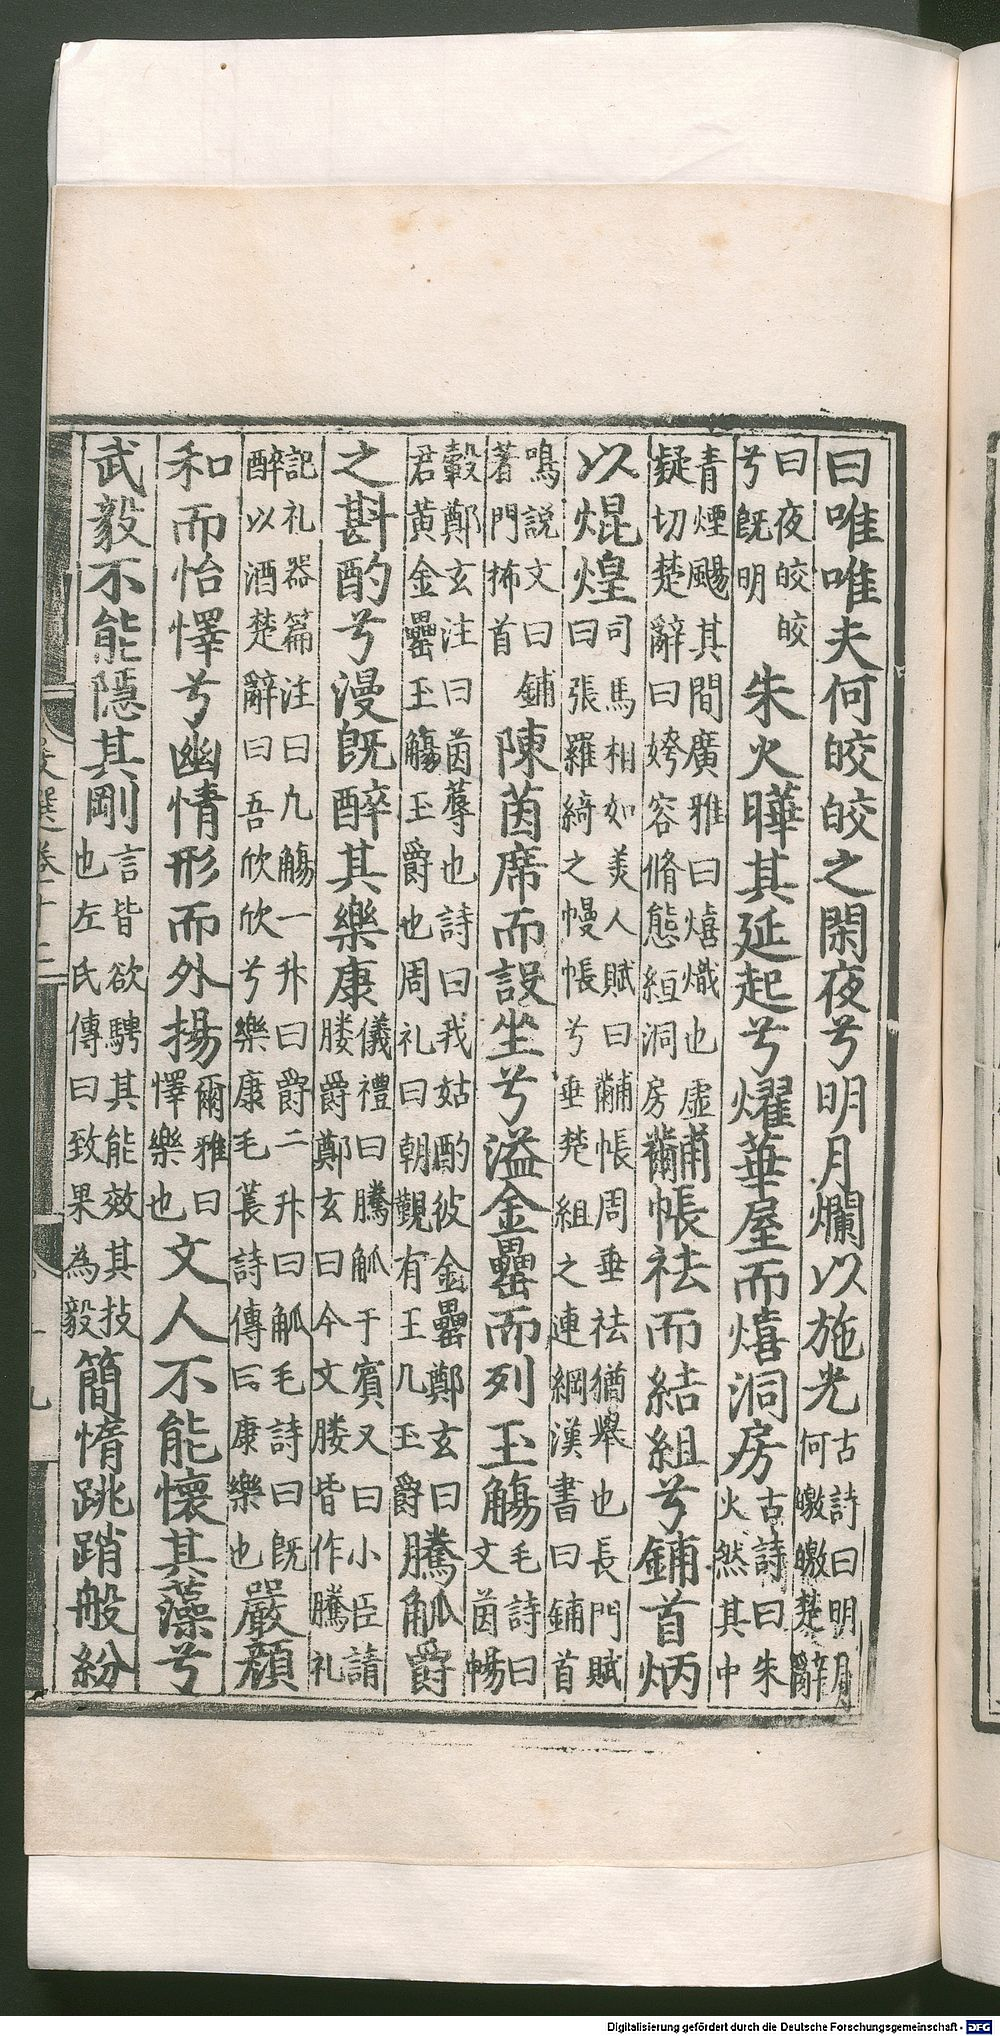 曰唯唯夫何皎皎之閑夜兮明月爛以施光古詩曰明月何皦皦楚辭
曰夜皎皎兮既明朱火曄其延起兮燿華屋而熺洞房古詩曰朱火然其中
青煙颺其間廣雅曰熺熾也虛疑切楚辭曰姱容脩態絙洞房黼帳袪而結組兮鋪首炳
以焜煌司馬相如美人賦曰黼帳周垂袪猶舉也長門賦曰張羅綺之幔帳兮垂楚組之連綱漢書曰鋪首
鳴說文曰鋪著門抪首陳茵席而設坐兮溢金罍而列玉觴毛詩曰文茵暢
轂鄭玄注曰茵蓐也詩曰我姑酌彼金罍鄭玄曰君黃金罍玉觴玉爵也周礼曰朝覲有王几玉爵騰觚爵
之斟酌兮漫既醉其樂康儀禮曰騰觚于賓又曰小臣請媵爵鄭玄曰今文媵皆作騰礼
記礼器篇注曰九觴一升曰爵二升曰觚毛詩曰既醉以酒楚辭曰吾欣欣兮樂康毛萇詩傳曰康樂也嚴顏
和而怡懌兮幽情形而外揚爾雅曰懌樂也文人不能懷其藻兮
武毅不能隱其剛言皆欲騁其能效其技也左氏傳曰致果為毅簡惰跳踃般紛
Digitalisierung gefördert durch die Deutsche Forschungsgemeinschaft - DFG